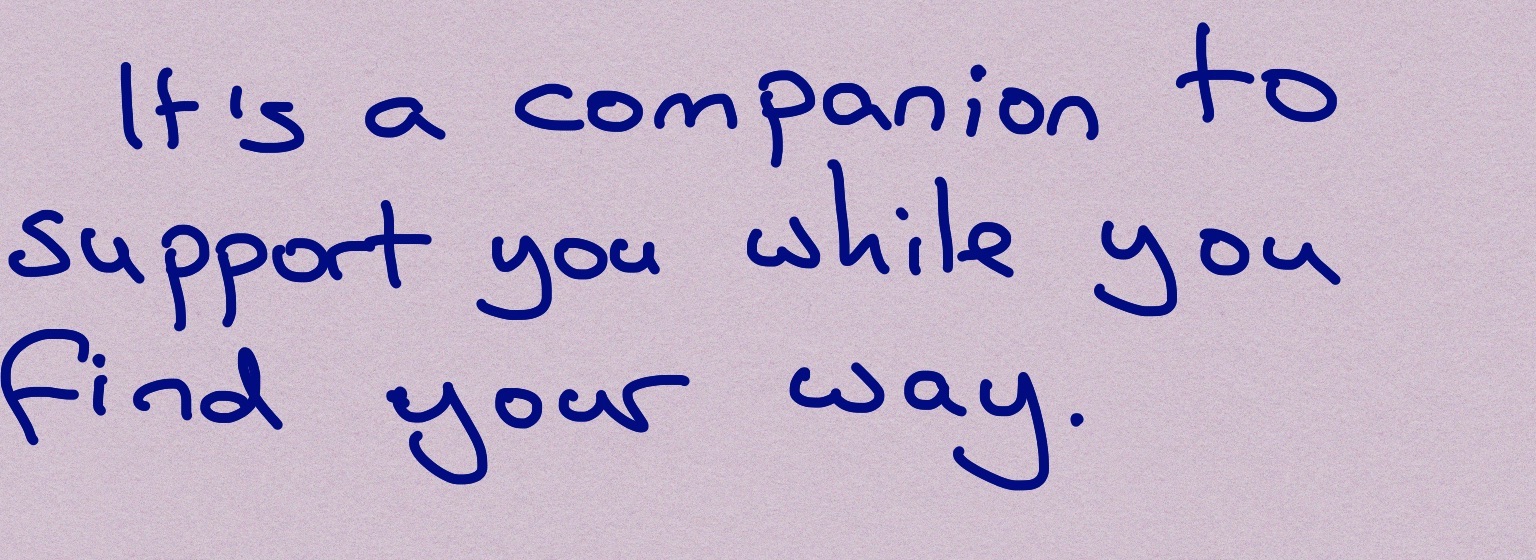 It's a companion to
support you while you
find your way.